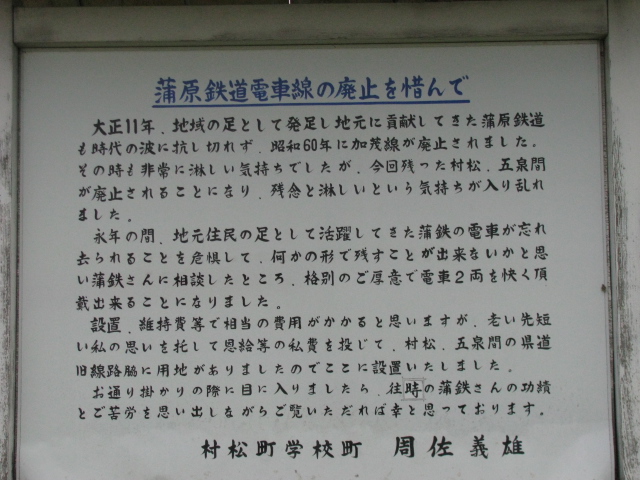 蒲原鉄道電車線の廃止を惜んで
大正11年、地域の足として発足し地元に貢献してきた蒲原鉄道
も時代の波に抗し切れず、昭和60年に加茂線が廃止されました。
その時も非常に淋しい気持ちでしたが、今回残った村松、五泉間
が廃止されることになり、残念と淋しいという気持ちが入り乱れ
ました。
永年の間、地元住民の足として活躍してきた蒲鉄の電車が忘れ
去られることを危惧して、何かの形で残すことが出来ないかと思
い蒲鉄さんに相談したところ、格別のご厚意で電車2両を快く頂
戴出来ることになりました。
設置、維持費等で相当の費用がかかると思いますが、老い先短
い私の思いを托して恩給等の私費を投じて、村松、五泉間の県道
旧線路脇に用地がありましたのでここに設置いたしました。
お通り掛かりの際に目に入りましたら、往時の蒲鉄さんの功績
とご苦労を思い出しながらご覧いただれば幸と思っております。
村松町学校町 周佐義雄